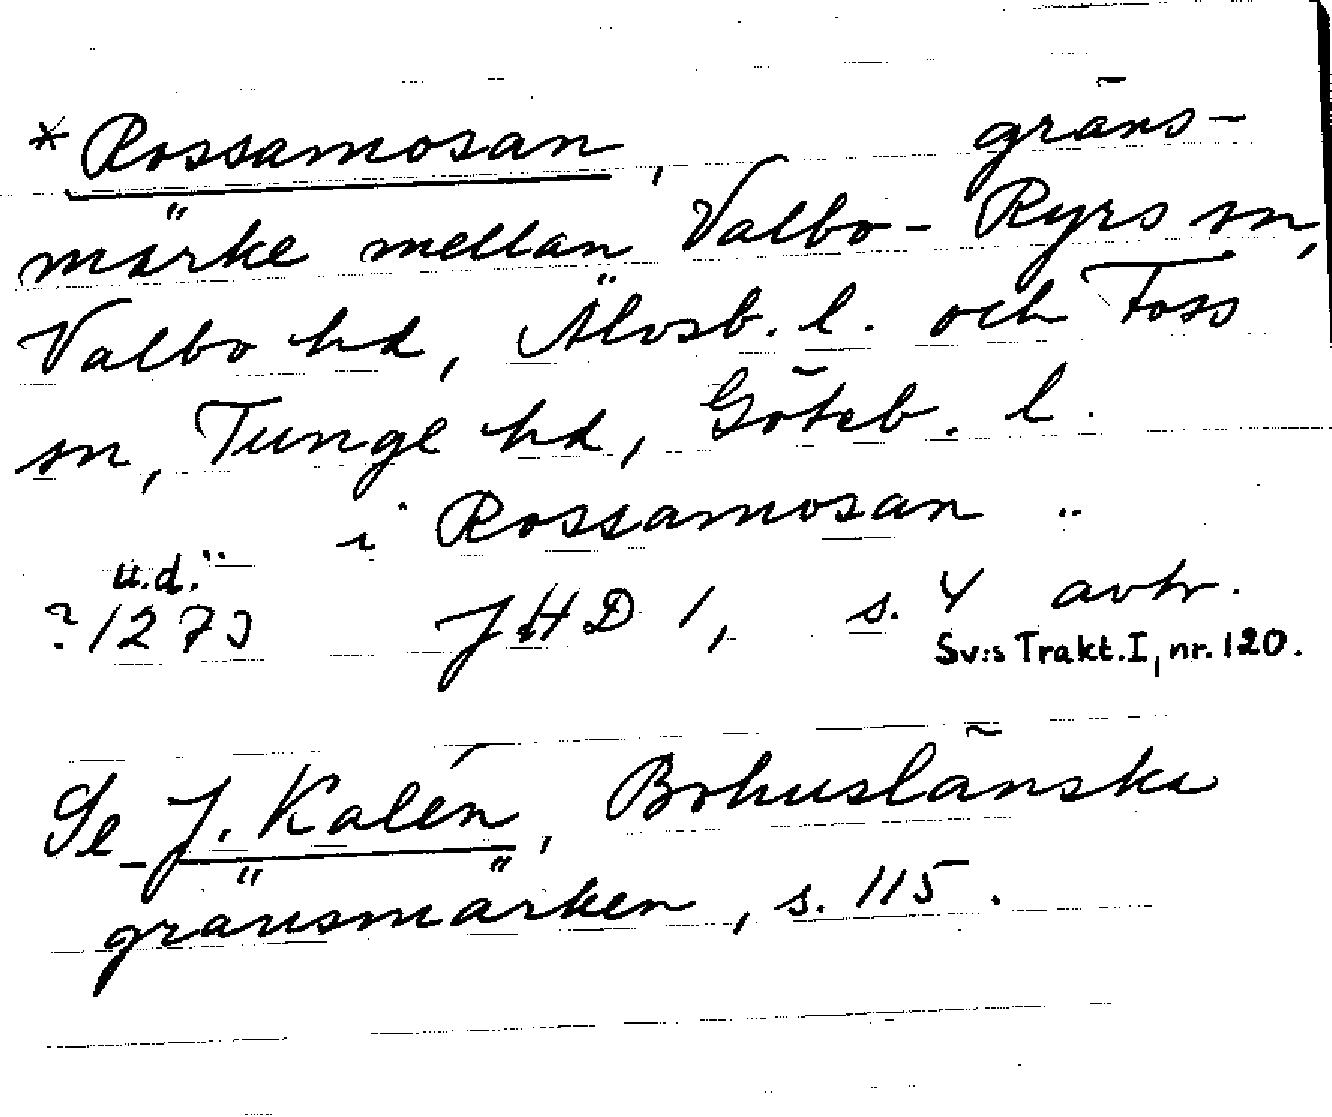 *Rossamosan, gräns-
märke mellan Valbo-Ryrs sn,
Valbo hd, Älvsb. l. och Foss
sn, Tunge hd, Göteb. l.
i Rossamosan ..
u.d."
?1273 JHD 1, s. 4 avtr.
Sv:s Trakt. I, nr. 120.
Se J. Kalén, Bohuslänska
gränsmärken, s. 115.